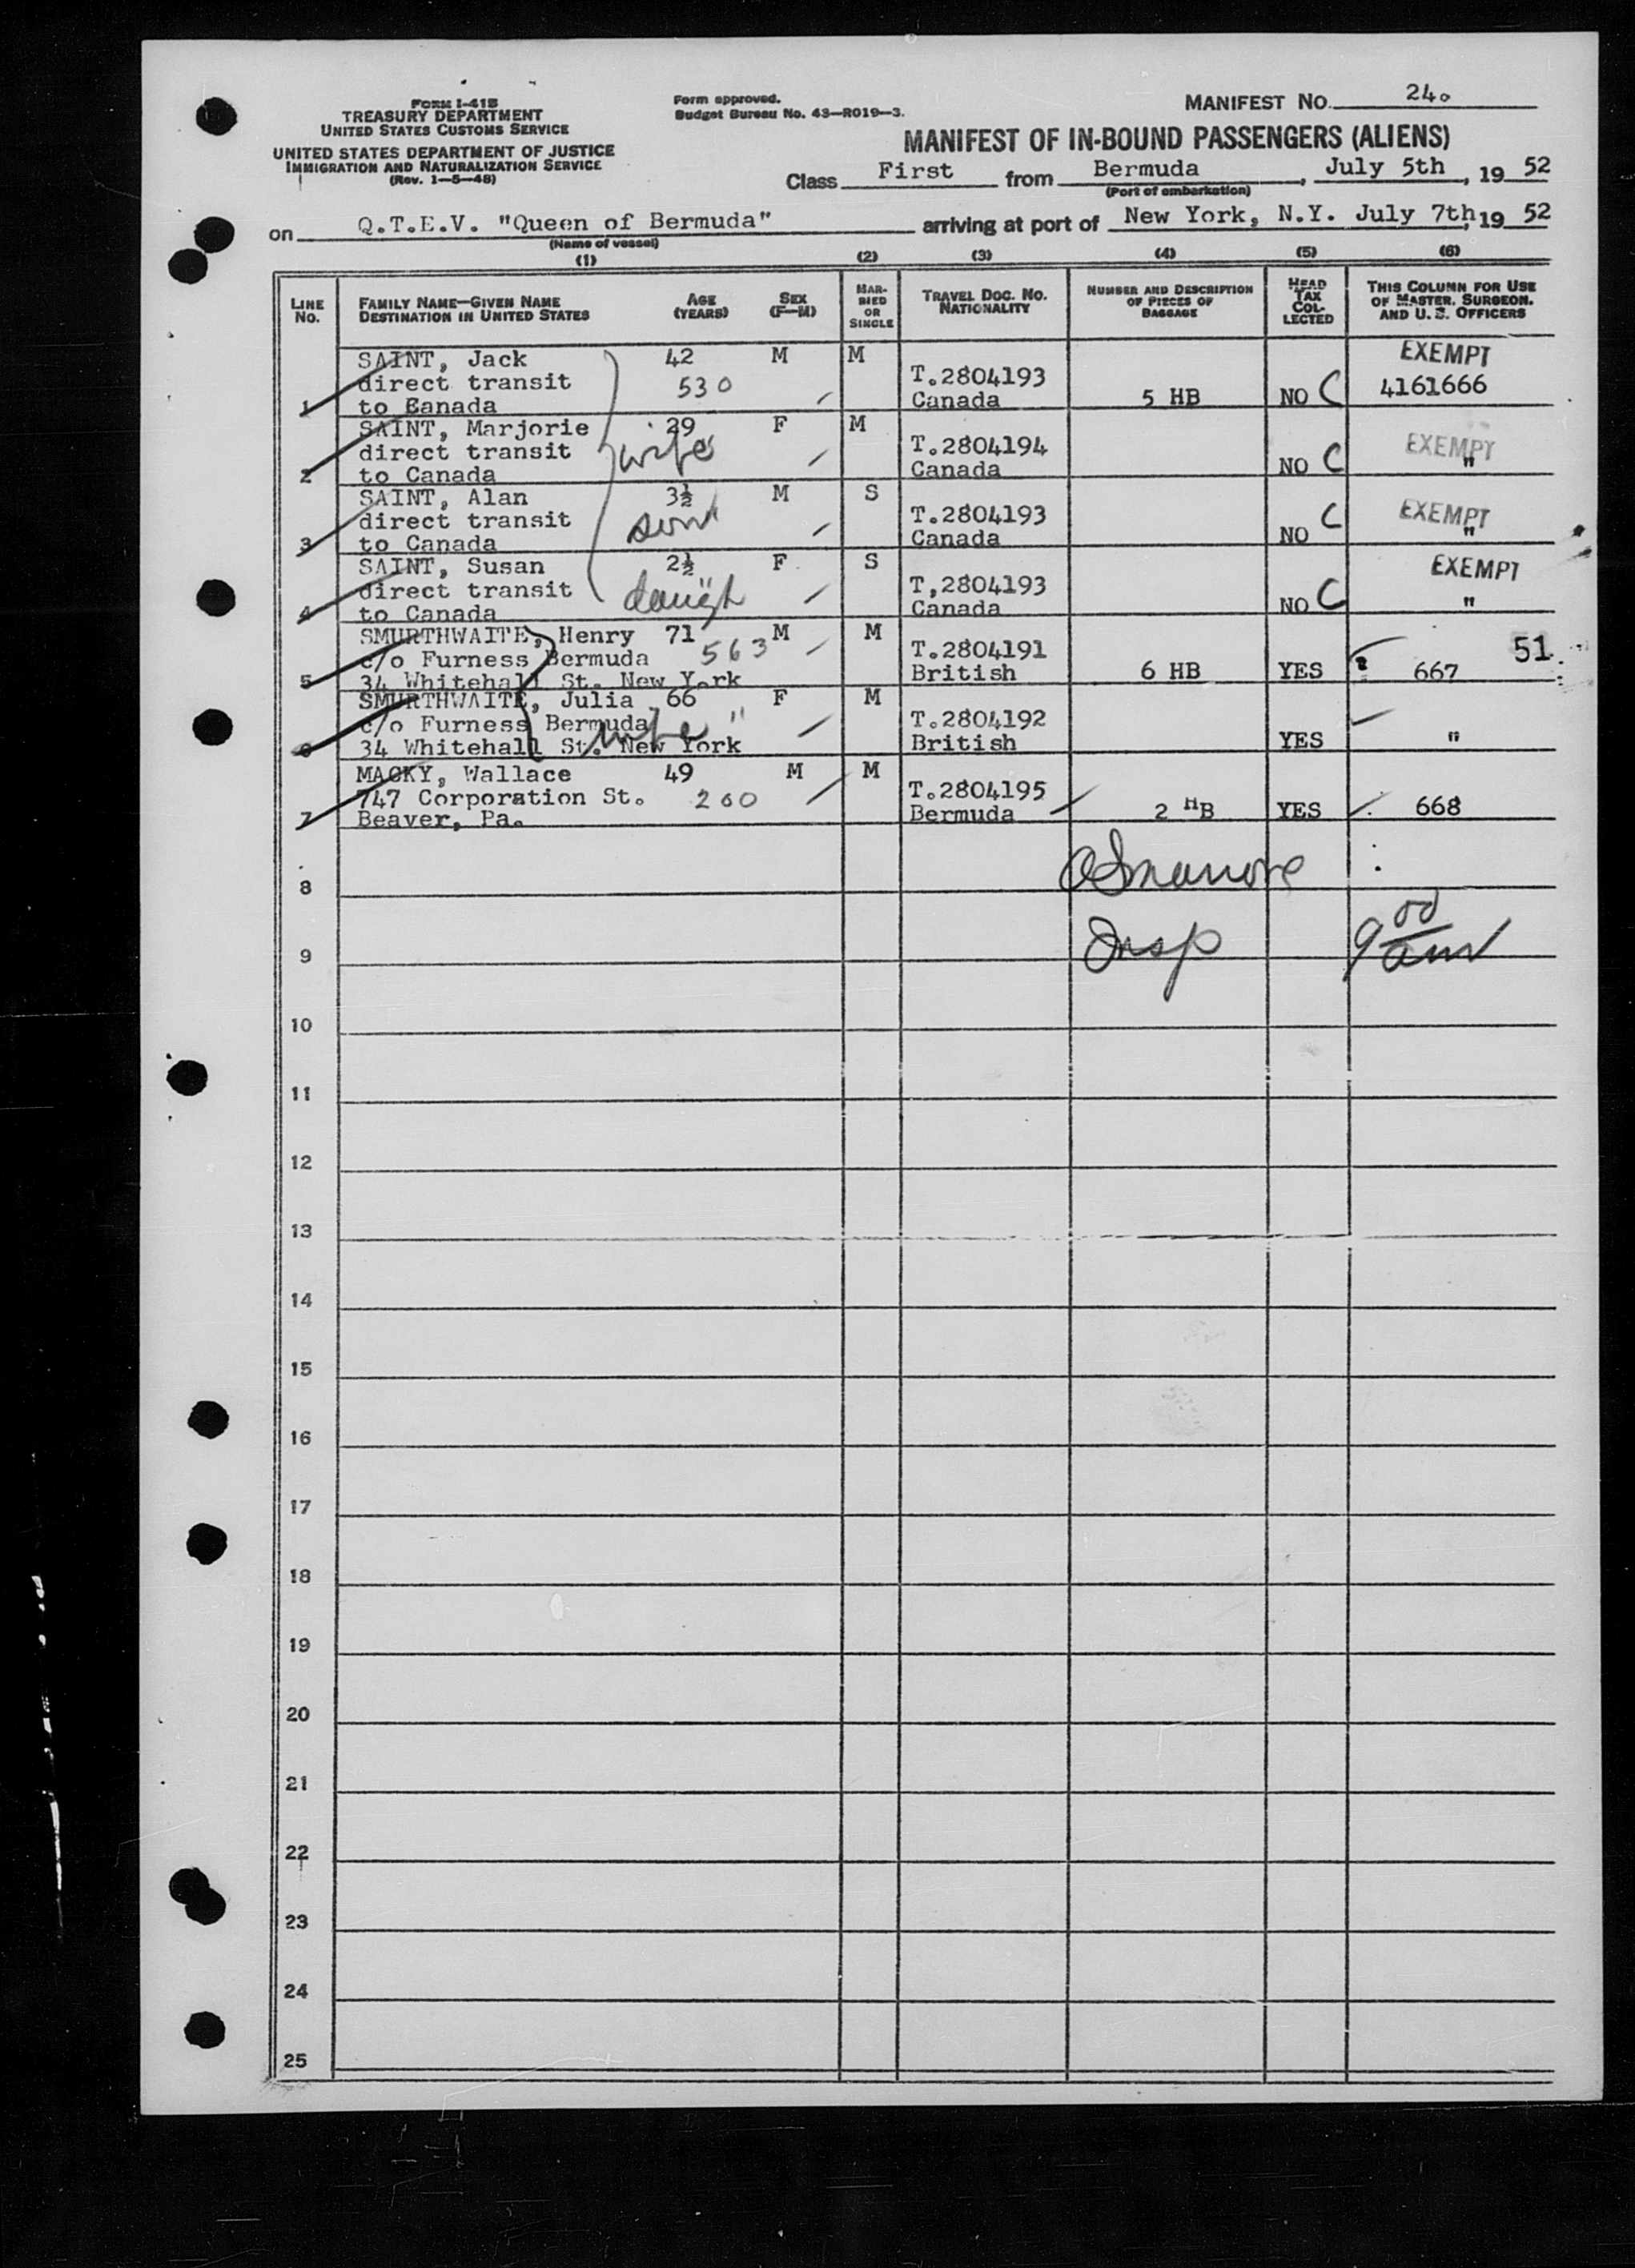 FORM I-418
TREASURY DEPARTMENT
UNITED STATES CUSTOMS SERVICE
UNITED STATES DEPARTMENT OF JUSTICE
IMMIGRATION AND NATURALIZATION SERVICE
(Rev. 1-5-48)
Form approved.
Budget Bureau No. 43-R019-3.
MANIFEST NO. 24.
MANIFEST OF IN-BOUND PASSENGERS (ALIENS)
Class First from Bermuda, July 5th, 19 52
(Port of embarkation)
on Q.T.E.V. "Queen of Bermuda" arriving at port of New York, N.Y. July 7th, 19 52
(Name of vessel)
(1) (2) (3) (4) (5) (6)
LINE NO.
FAMILY NAME—GIVEN NAME
DESTINATION IN UNITED STATES
AGE (YEARS)
SEX (F—M)
MARRIED OR SINGLE
TRAVEL DOC. NO.
NATIONALITY
NUMBER AND DESCRIPTION OF PIECES OF BAGGAGE
HEAD TAX COLLECTED
THIS COLUMN FOR USE OF MASTER, SURGEON, AND U. S. OFFICERS
SAINT, Jack 42 M M EXEMPT
direct transit 530 T.2804193 4161666
1 to Eanada Canada 5 HB NO C
SAINT, Marjorie 29 F M
direct transit wife T.2804194 EXEMPT
2 to Canada Canada NO C "
SAINT, Alan 3½ M S
direct transit son T.2804193 EXEMPT
3 to Canada Canada NO C "
SAINT, Susan 2½ F S EXEMPT
direct transit daugh T,2804193
4 to Canada Canada NO C "
SMURTHWAITE, Henry 71 M M
c/o Furness Bermuda 563 T.2804191 51
5 34 Whitehall St. New York British 6 HB YES 667
SMURTHWAITE, Julia 66 F M
c/o Furness Bermuda " T.2804192
6 34 Whitehall St. New York wife British YES "
MACKY, Wallace 49 M M
747 Corporation St. 260 T.2804195
7 Beaver, Pa. Bermuda 2 HB YES 668
8
9 Insp 9 00 am
10
11
12
13
14
15
16
17
18
19
20
21
22
23
24
25